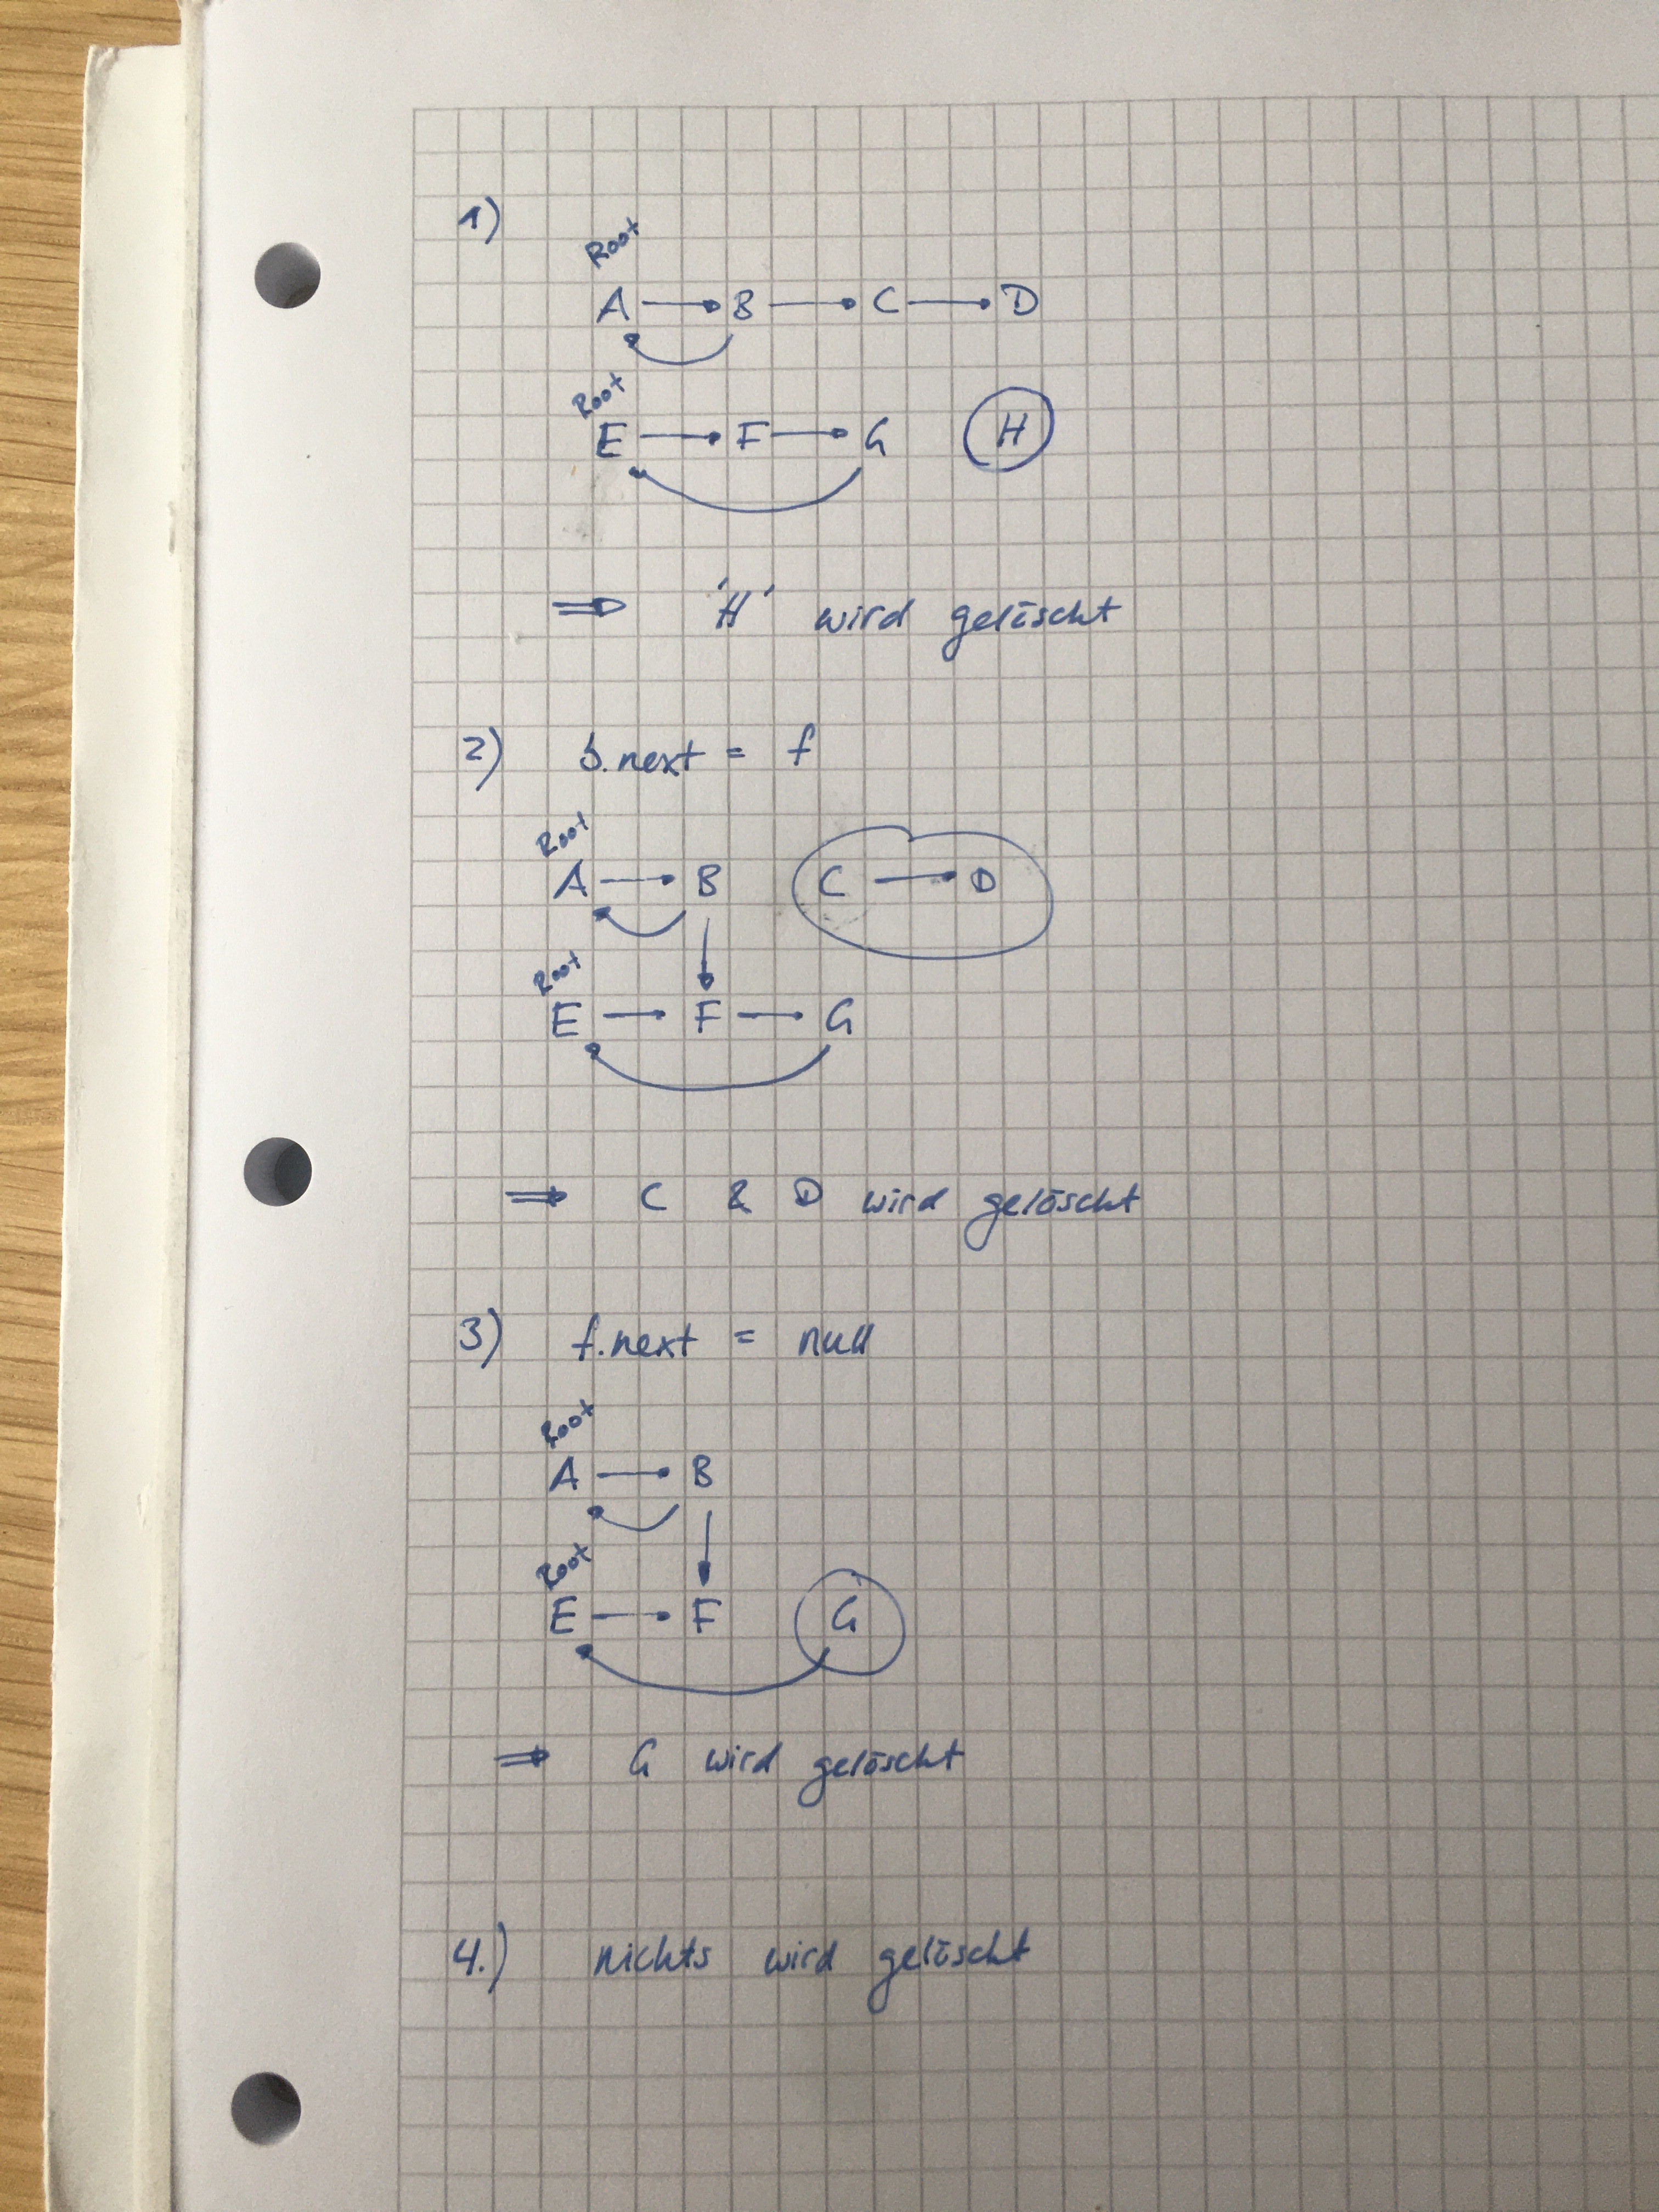 1)
Root
A → B → C → D
Root
E → F → G H
⇒ 'H' wird gelöscht
2) b.next = f
Root
A → B C → D
Root
E → F → G
⇒ C & D wird gelöscht
3) f.next = null
Root
A → B
Root
E → F G
⇒ G wird gelöscht
4.) nichts wird gelöscht